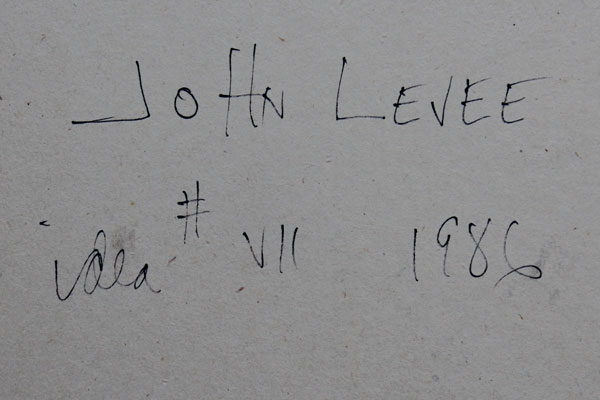 JOHN LEVEE
idea # VII 1986